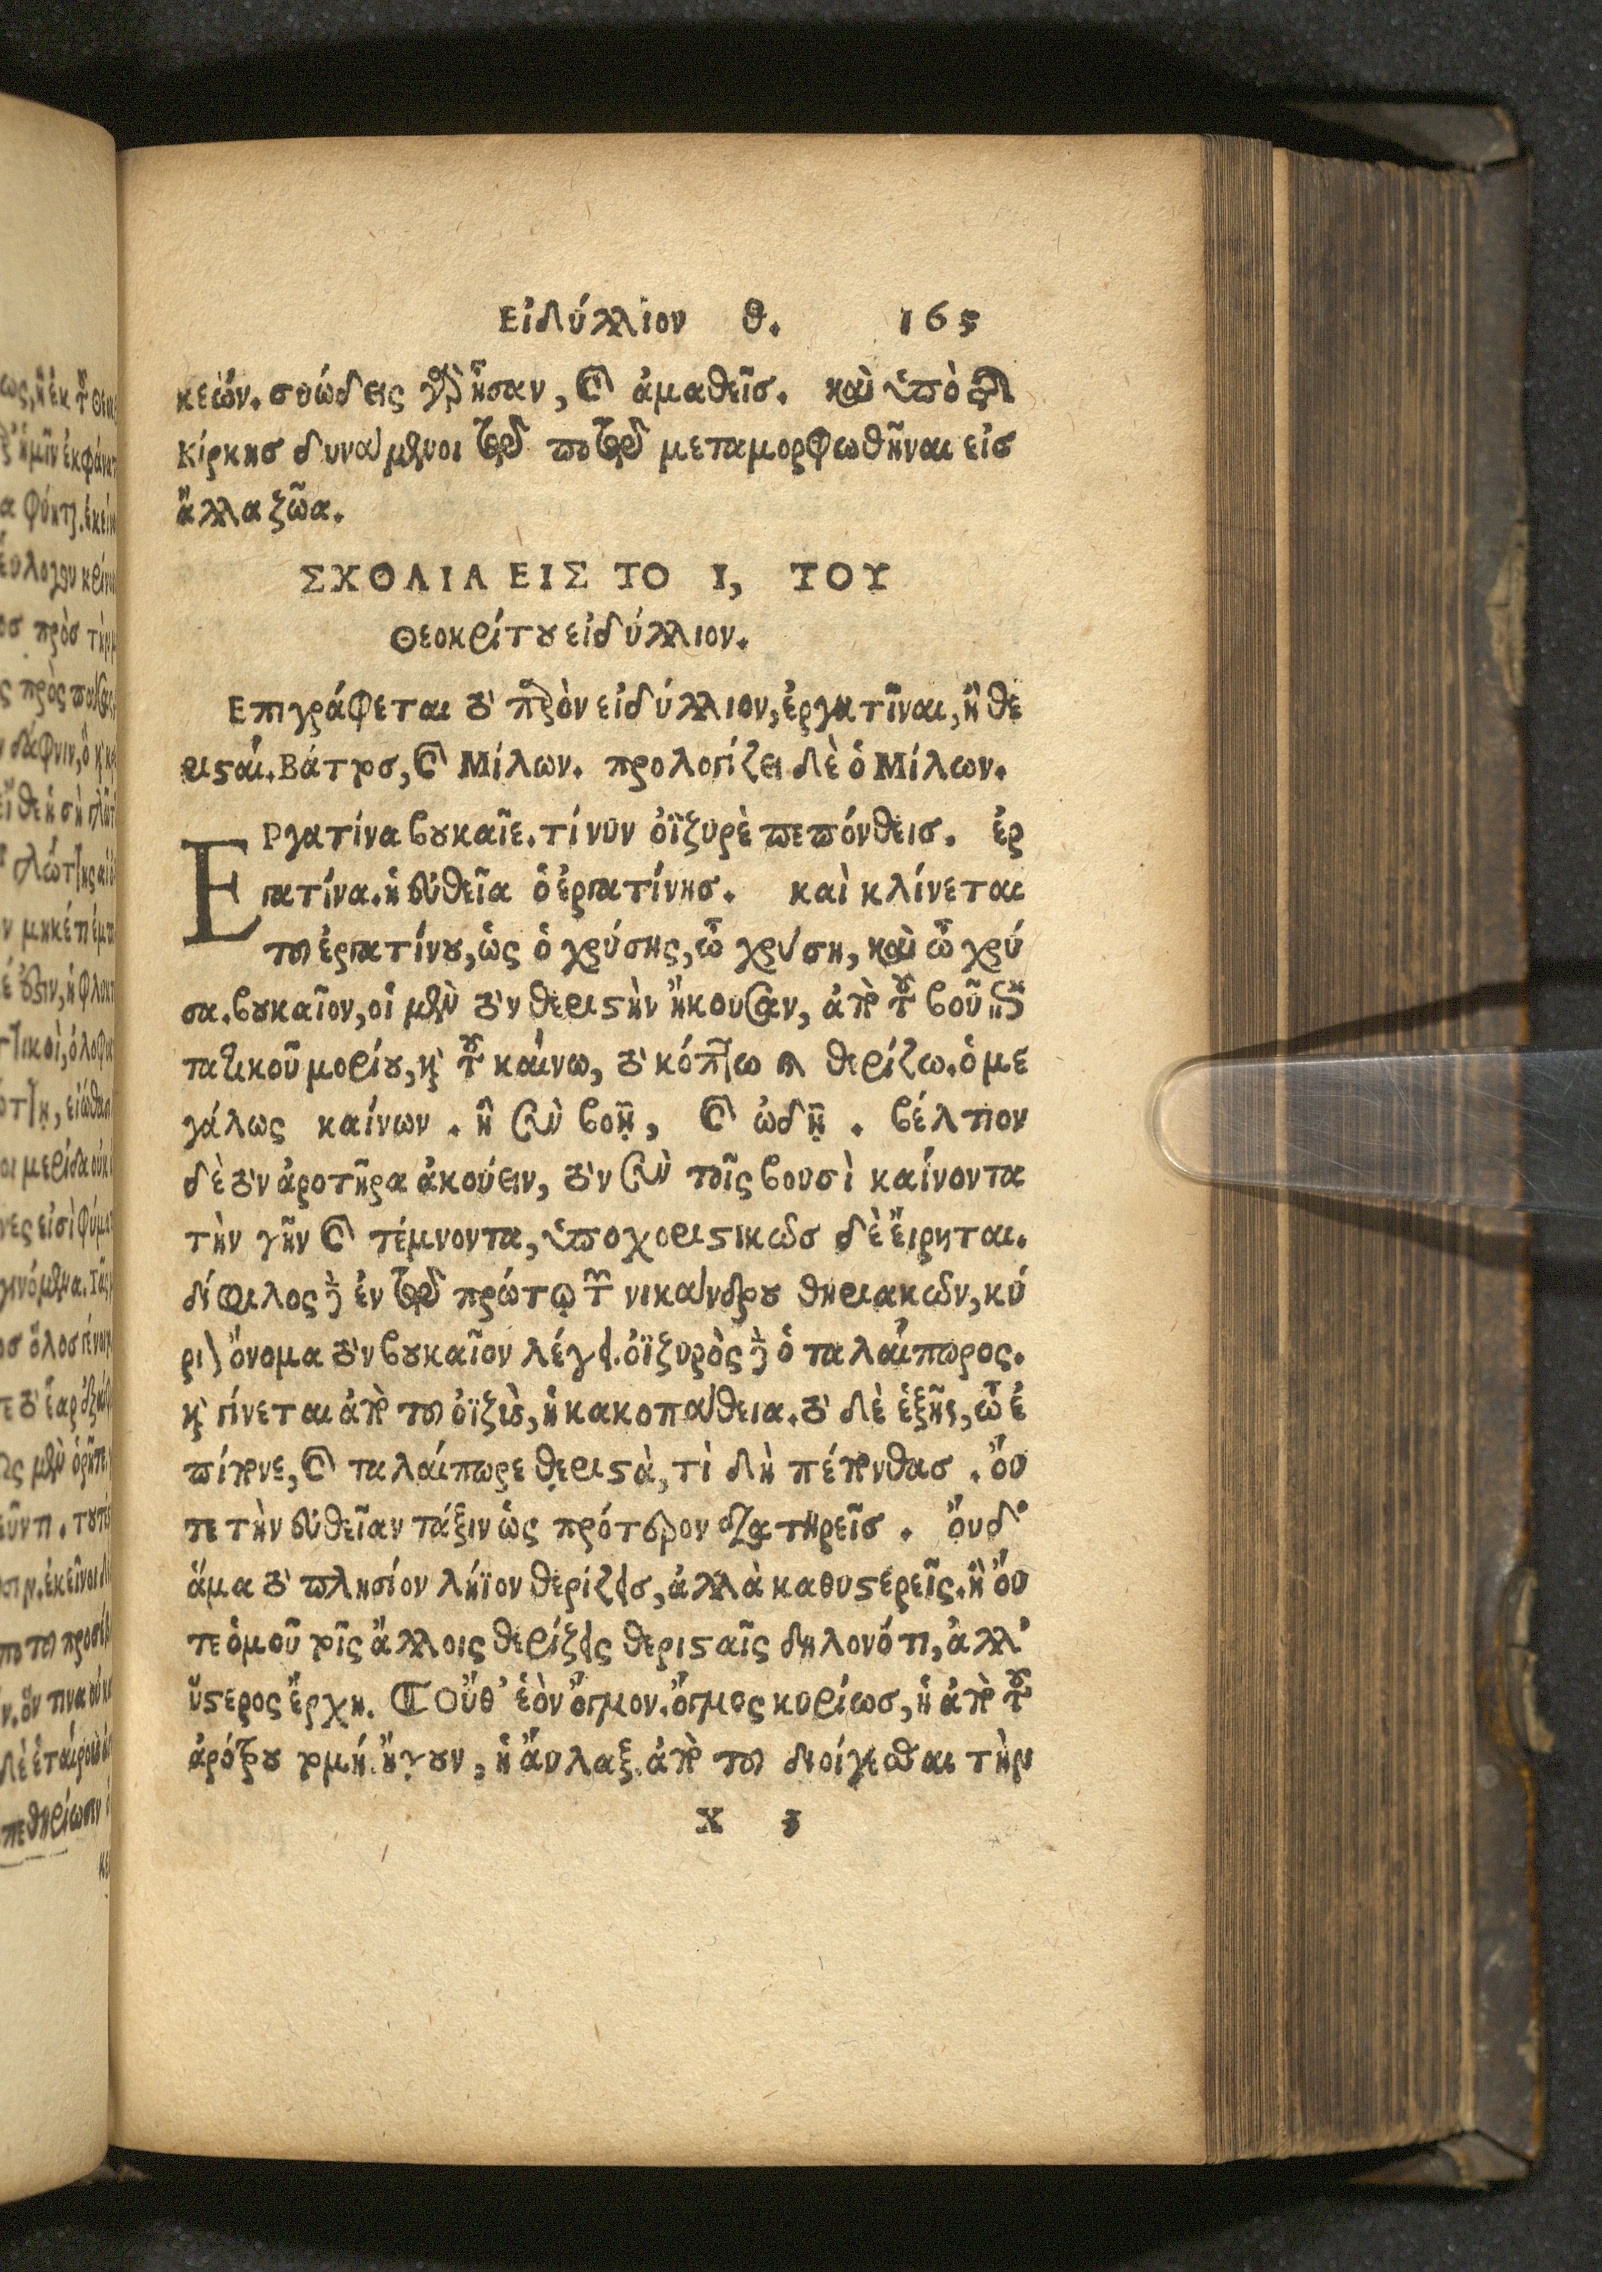 Εἰδύλλιον θ. 165
κείων. συώδεις γὰρ ἦσαν, καὶ ἀμαθεῖς. καὶ ὑπὸ τῆς
Κίρκης δυνάμενοι τῷ ποτῷ μεταμορφωθῆναι εἰς
ἄλλα ζῶα.
ΣΧΟΛΙΑ ΕΙΣ ΤΟ Ι, ΤΟΥ
Θεοκρίτου εἰδύλλιον.
Επιγράφεται τὸ παρὸν εἰδύλλιον, ἐργατῖναι, ἢ θε
ρισταί. Βάττος, καὶ Μίλων. προλογίζει δὲ ὁ Μίλων.
ΕΡγατίνα βουκαῖε. τί νῦν ὀϊζυρὲ πεπόνθεις. ἐρ
γατίνα. ἡ εὐθεῖα ὁ ἐργατίνης. καὶ κλίνεται
τοῦ ἐργατίνου, ὡς ὁ χρύσης, ὦ χρύση, καὶ ὦ χρύ
σα. βουκαῖον, οἱ μὲν τὸν θεριστὴν ἤκουσαν, ἀπὸ τοῦ βοῦ
τατικοῦ μορίου, καὶ τοῦ καίνω, τὸ κόπτω καὶ θερίζω. ὁ με
γάλως καίνων. ἢ σὺν βοῇ, καὶ ὠδῇ. βέλτιον
δὲ τὸν ἀροτῆρα ἀκούειν, τὸν σὺν τοῖς βουσὶ καίνοντα
τὴν γῆν καὶ τέμνοντα, ὑποχοριστικῶς δὲ ἔιρηται.
δίφιλος δὲ ἐν τῷ πρώτῳ τῶν νικάνδρου θηριακῶν, κύ
ριον ὄνομα τὸν βουκαῖον λέγει. ὀϊζυρὸς δὲ ὁ ταλαίπωρος.
καὶ γίνεται ἀπὸ τοῦ ὀϊζὺς, ἡ κακοπάθεια. τὸ δὲ ἑξῆς, ὦ ἐ
πίπονε, καὶ ταλαίπωρε θεριστὰ, τὶ δὴ πέπονθας. ὄυ
τε τὴν εὐθεῖαν τάξιν ὡς πρότερον διατηρεῖς. ὄυδ'
ἅμα τὸ πλησίον λήϊον θερίζεις, ἀλλὰ καθυστερεῖς. ἢ ὄυ
τε ὁμοῦ τοῖς ἄλλοις θερίζεις θερισταῖς δηλονότι, ἀλλ'
ὕστερος ἔρχη. Τοὔθ' ἑὸν ὄγμον. ὄγμος κυρίως, ἡ ἀπὸ τοῦ
ἀρότρου τομή. ἤγουν, ἡ ἄυλαξ. ἀπὸ τοῦ δι οίγεσθαι τὴν
X 5